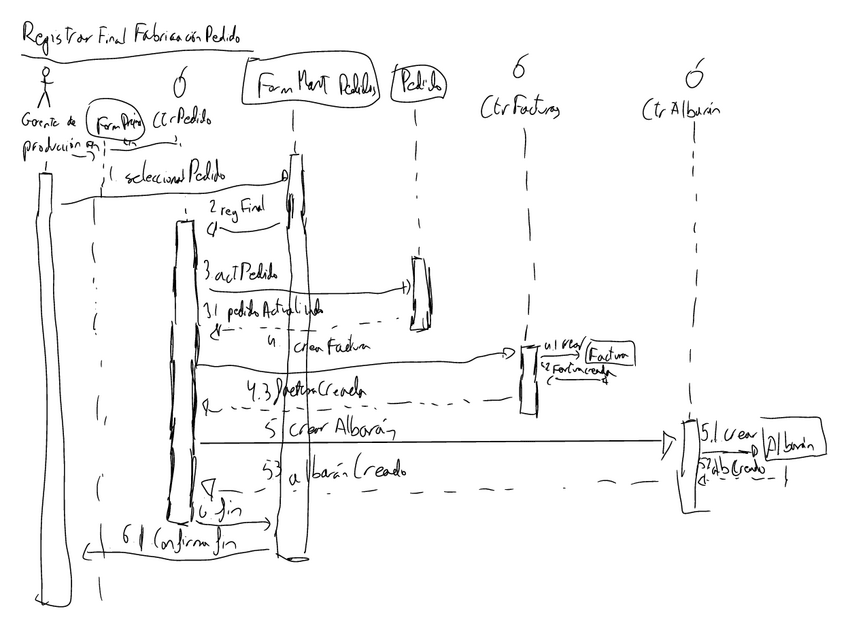 Registrar Final Fabricación Pedido
Gerente de
producción
CtrPedido
Form Mant Pedidos
Pedido
CtrFacturas
CtrAlbarán
1. seleccionaPedido
2 regFinal
3 actPedido
3.1 pedidoActualizado
4. crearFactura
4.1 crear
Factura
4.2 Facturacreada
4.3 facturaCreada
5 crear Albarán
5.1 crear
Albarán
5.2 AlbCreado
5.3 albaránCreado
6 fin
6.1 Confirma fin